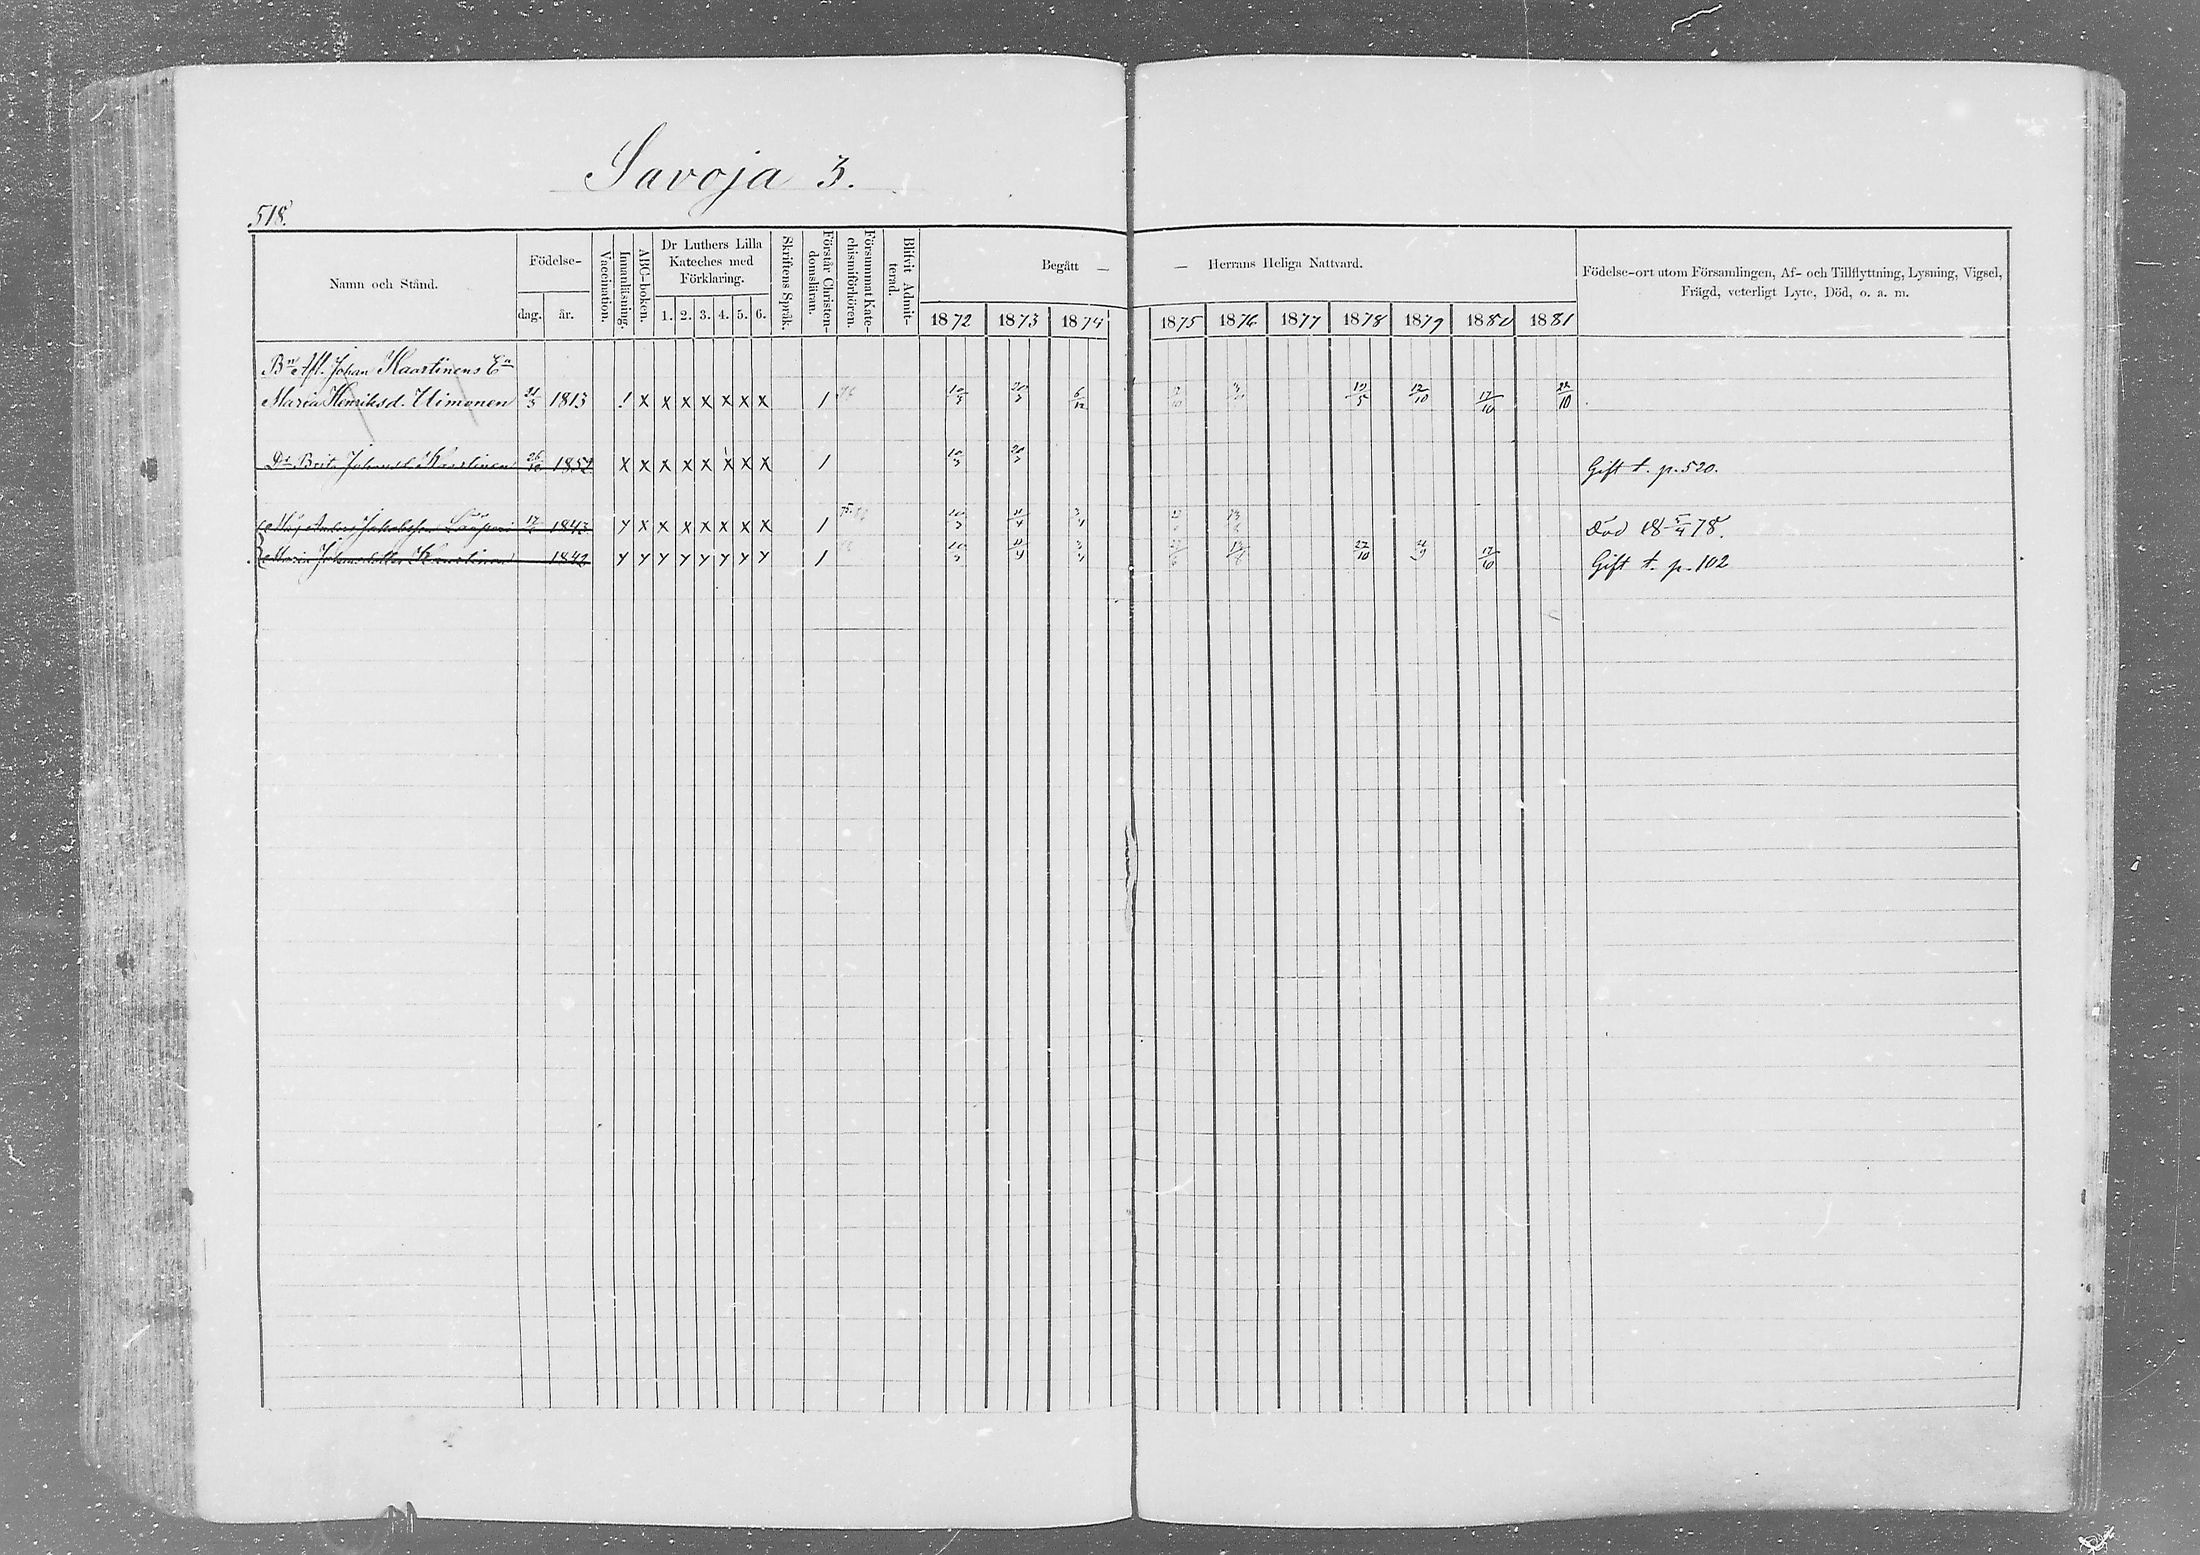 Savoja 3.
518.
Namn och Stånd.
Födelse-
dag.
år.
Vaccination.
Innanläsning.
ABC-boken.
Dr Luthers Lilla
Kateches med
Förklaring.
1. 2. 3. 4. 5. 6.
Skriftens Språk.
Förstår Christen-
domsläran.
Försummat Kate-
chismiförhören.
Blifvit Admit-
terad.
Begått —
— Herrans Heliga Nattvard.
1872 1873 1874 1875 1876 1877 1878 1879 1880 1881
Födelse-ort utom Församlingen, Af- och Tillflyttning, Lysning, Vigsel,
Frägd, veterligt Lyte, Död, o. a. m.
Bn Afl. Johan Kaartinens En
Maria Henriksd. Uimonen 21/3 1813 ! X X X X X X X 1 10/3 20/3 6/12 19/5 12/10 17/10 22/10
Dr Brita Johansd. Kaartinen 26/10 1852 X X X X X X X X 1 10/3 20/3 Gift t. p. 520.
Måg Anders 1843 Y X X X X X X X 1 10/3 11/4 3/4 Död 18 5/4 78.
Maria Kaartinen 1842 Y Y Y Y Y Y Y Y 1 10/3 11/4 3/4 27/10 21/9 17/10 Gift t. p. 102